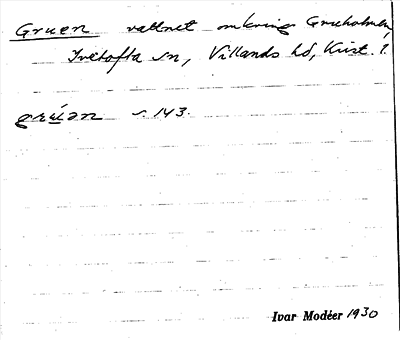 Gruen vattnet omkring Grueholmen,
Ivetofta sn, Villands hd, Krist. l.
grúən s. 143.
Ivar Modéer 1930